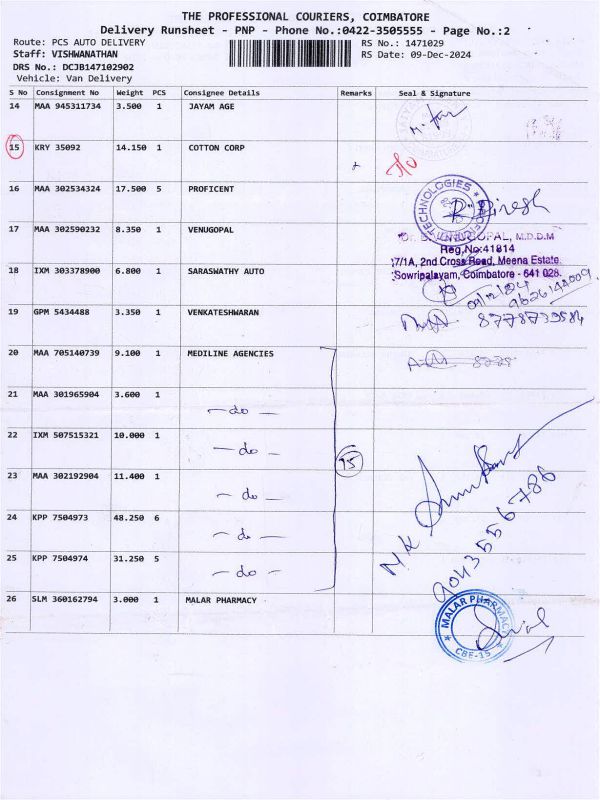 THE PROFESSIONAL COURIERS, COIMBATORE
Delivery Runsheet - PNP - Phone No.:0422-3505555 - Page No.:2
Route: PCS AUTO DELIVERY RS No.: 1471029
Staff: VISHWANATHAN RS Date: 09-Dec-2024
DRS No.: DCJB147102902
Vehicle: Van Delivery
S No Consignment No Weight PCS Consignee Details Remarks Seal & Signature
14 MAA 945311734 3.500 1 JAYAM AGE
15 KRY 35092 14.150 1 COTTON CORP
16 MAA 302534324 17.500 5 PROFICENT
TECHNOLOGIES
17 MAA 302590232 8.350 1 VENUGOPAL
VENUGOPAL, M.D.D.M
Reg.No:41814
7/1A, 2nd Cross Road, Meena Estate,
Sowripalayam, Coimbatore - 641 028.
18 IXM 303378900 6.800 1 SARASWATHY AUTO
9626144009
19 GPM 5434488 3.350 1 VENKATESHWARAN
20 MAA 705140739 9.100 1 MEDILINE AGENCIES
21 MAA 301965904 3.600 1
- do -
22 IXM 507515321 10.000 1
- do -
15
23 MAA 302192904 11.400 1
- do -
24 KPP 7504973 48.250 6
- do -
25 KPP 7504974 31.250 5
- do -
9043556786
26 SLM 360162794 3.000 1 MALAR PHARMACY
MALAR PHARMACY
CBE-15